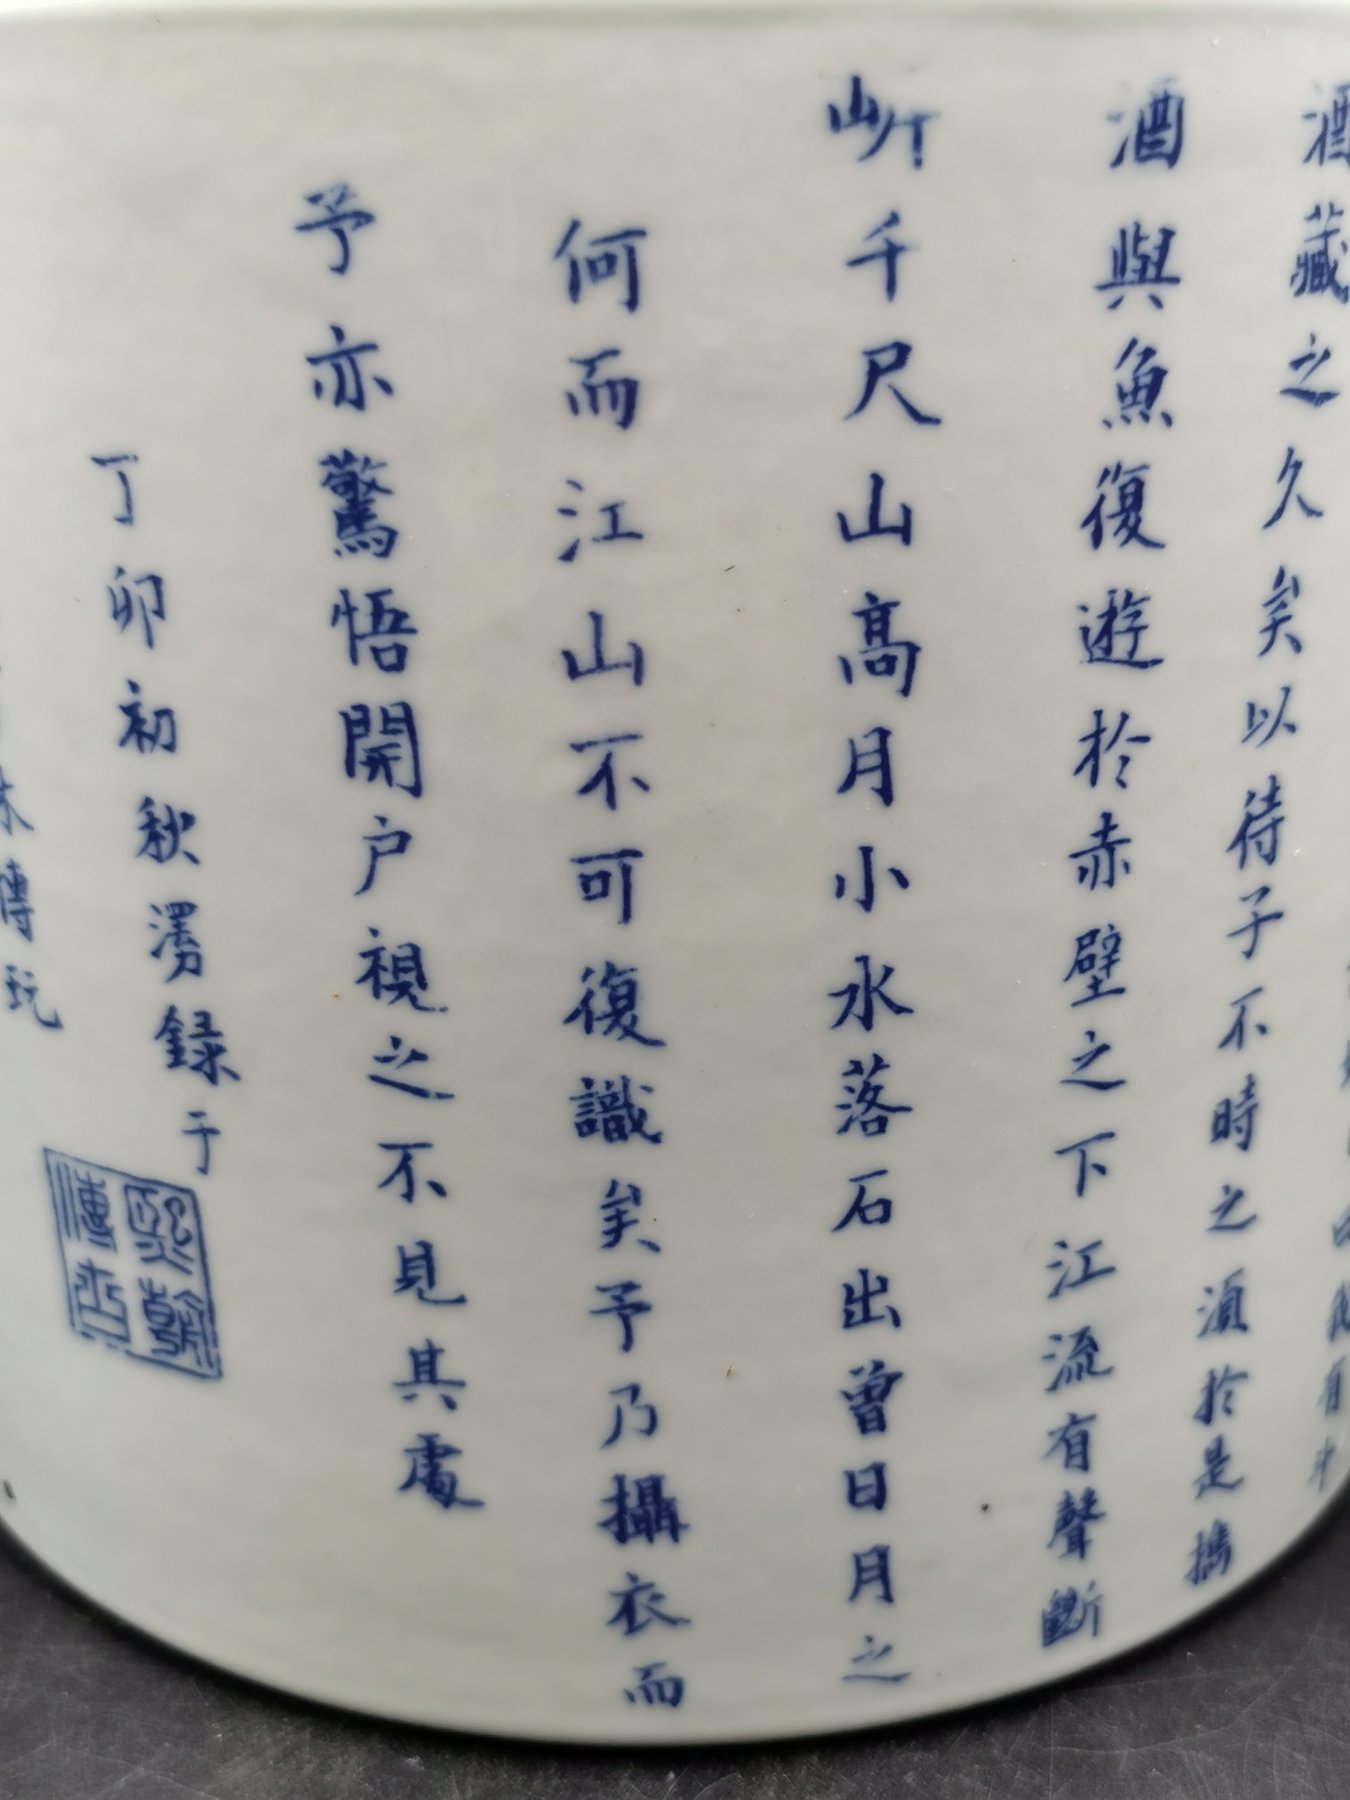 酒藏之久矣以待子不時之湏於是攜
酒與魚復遊於赤壁之下江流有聲斷
岸千尺山高月小水落石出曾日月之
何而江山不可復識矣予乃攝衣而
予亦驚悟開户視之不見其處
丁卯初秋澷録于
熙朝傳古
傳玩